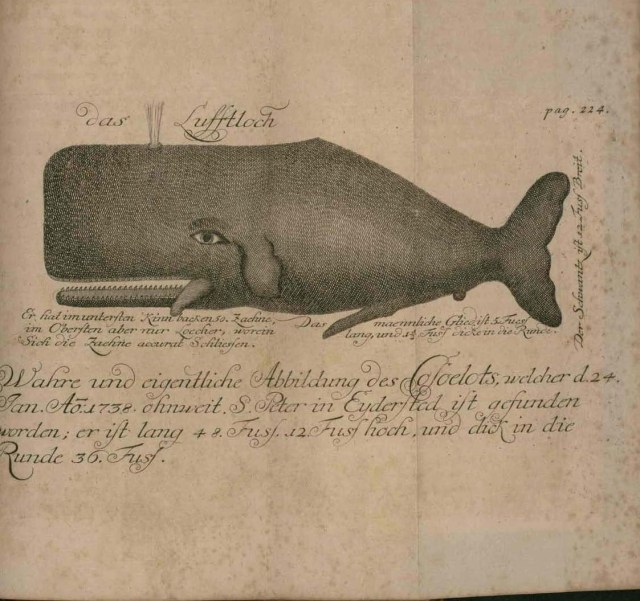 das Lufftloch
pag. 224.
Der Schwantz ist 12 Fuss Breit.
Er hat im untersten Kinnbacken 50. Zaehne,
im Obersten aber nur Loecher, worein
Sich die Zaehne accurat Schliessen.
Das maennliche Glied ist 5 Fuss
lang, und 1½ Fuss dicke in die Runde.
Wahre und eigentliche Abbildung des Cosoelots, welcher d. 24.
Jan. Ao. 1738. ohnweit, S. Peter in Eydersted, ist gefunden
worden; er ist lang 48. Fuss. 12 Fuss hoch, und dick in die
Runde 36. Fuss.